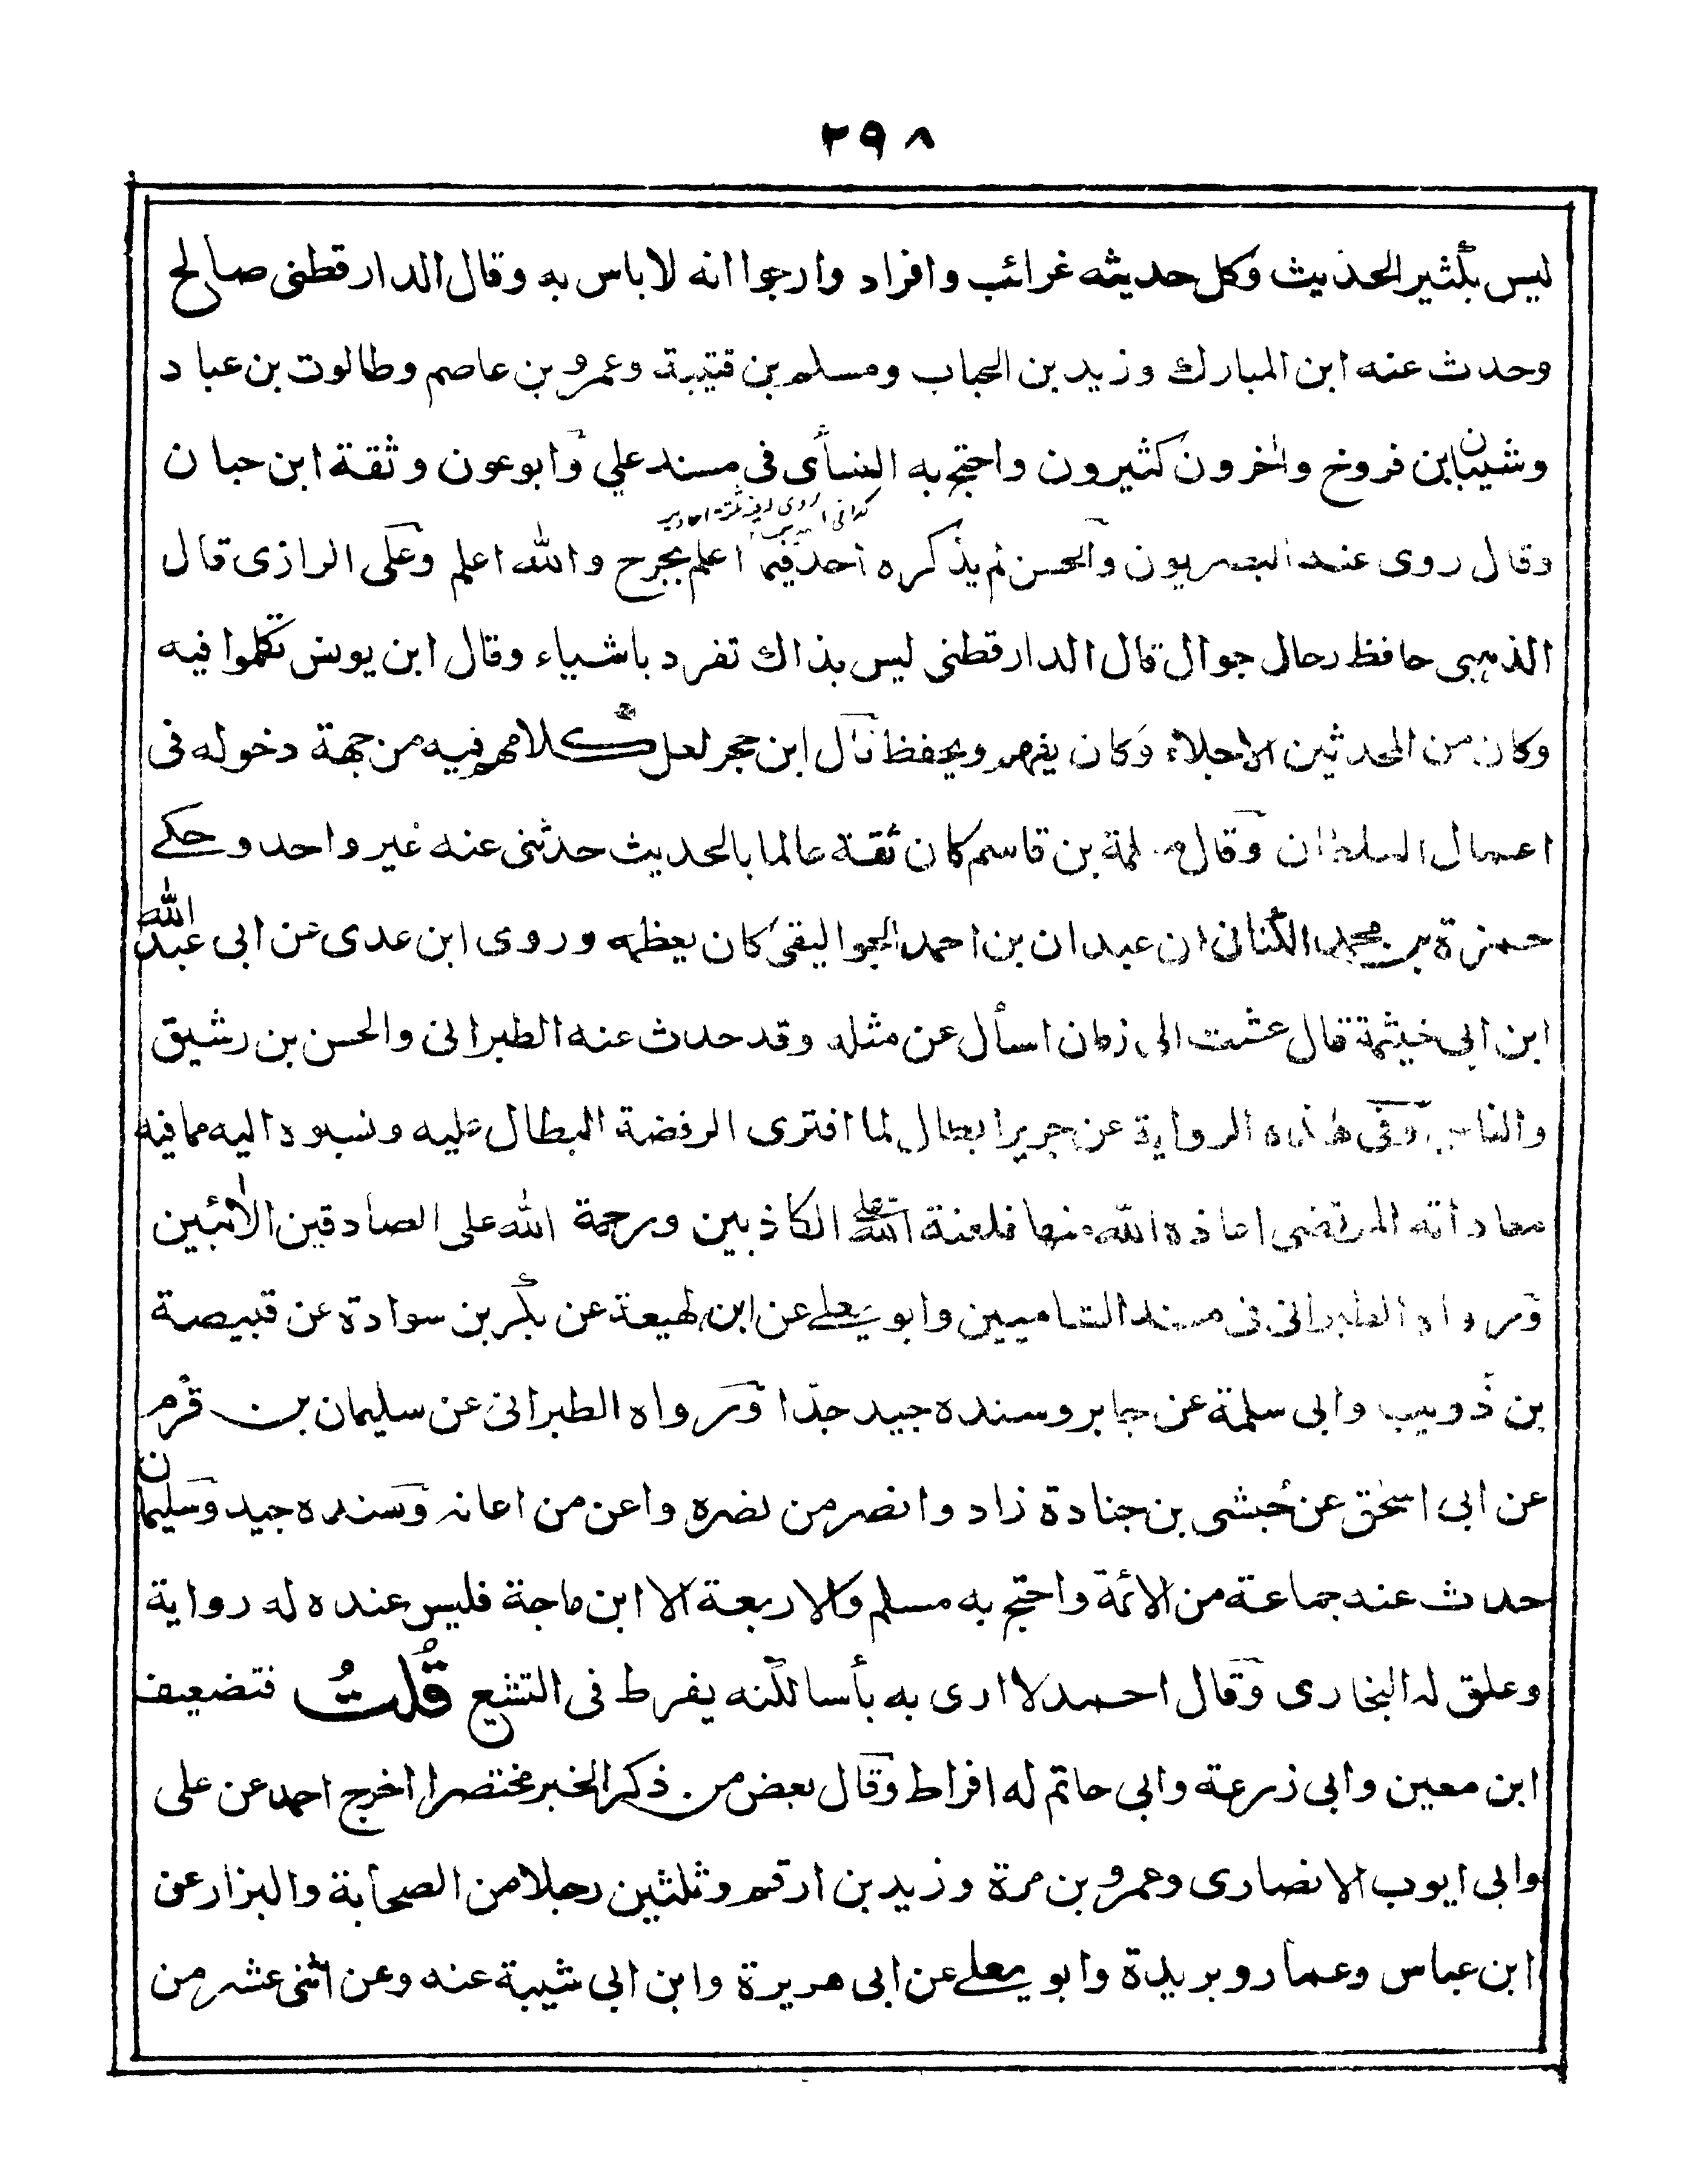 ٢٩٨
ليس بكثير الحديث وكل حديثه غرائب وافراد وارجوا انه لاباس به وقال الدارقطنى صالح
وحدث عنه ابن المبارك وزيد بن الحباب ومسلم بن قتيبة وعمرو بن عاصم وطالوت بن عباد
وشيبان بن فروخ واٰخرون كثيرون واحتج به النسأى فى مسند علي وابوعون وثقة ابن حبان
وقال روى عنه البصريون والحسن لم يذكره احد فيما اعلم بجرح والله اعلم وعلى الرازى قال
الذهبى حافظ رحال جوال قال الدارقطنى ليس بذاك تفرد باشياء وقال ابن يونس تكلموا فيه
وكان من المحدثين الاجلاء وكان يفهم ويحفظ قال ابن حجر لعل كلامهم فيه من جهة دخوله فى
اعمال السلطان وقال مسلمة بن قاسم كان ثقة عالما بالحديث حدثنى عنه غير واحد وحكے
حمزة بن محمد الكنانى ان عبدان بن احمد الجواليقى كان يعظمه وروى ابن عدى عن ابى عبد الله
ابن ابى خيثمة قال عشت الى زمان اسأل عن مثله وقد حدث عنه الطبرانى والحسن بن رشيق
والناس وفى هذه الرواية عن جرير ابطال لما افترى الرفضة البطال عليه ونسبوه اليه مما فيه
معاداته المرتضى اعاذه الله منها فلعنة الله على الكاذبين ورحمة الله على الصادقين الاٰئبين
ورواه الطبرانى فى مسند الشاميين وابو يعلے عن ابن لهيعة عن بكر بن سوادة عن قبيصة
بن ذويب وابى سلمة عن جابر وسنده جيد جدّا ورواه الطبرانى عن سليمان بن قرم
عن ابى اسحٰق عن حُبشى بن جنادة زاد وانصر من نصره واعن من اعانه وسنده جيد وسليمان
حدث عنه جماعة من الائمة واحتج به مسلم والاربعة الا ابن ماجة فليس عنده له رواية
وعلق له البخارى وقال احمد لا ارى به بأسا لكنه يفرط فى التشيع قُلتُ فتضعيف
ابن معين وابى زرعة وابى حاتم له افراط وقال بعض من ذكر الخبر مختصرا اخرج احمد عن على
وابى ايوب الانصارى وعمرو بن مرة وزيد بن ارقم وثلثين رجلا من الصحابة والبزار عن
ابن عباس وعمار وبريدة وابو يعلے عن ابى هريرة وابن ابى شيبة عنه وعن اثنى عشر من